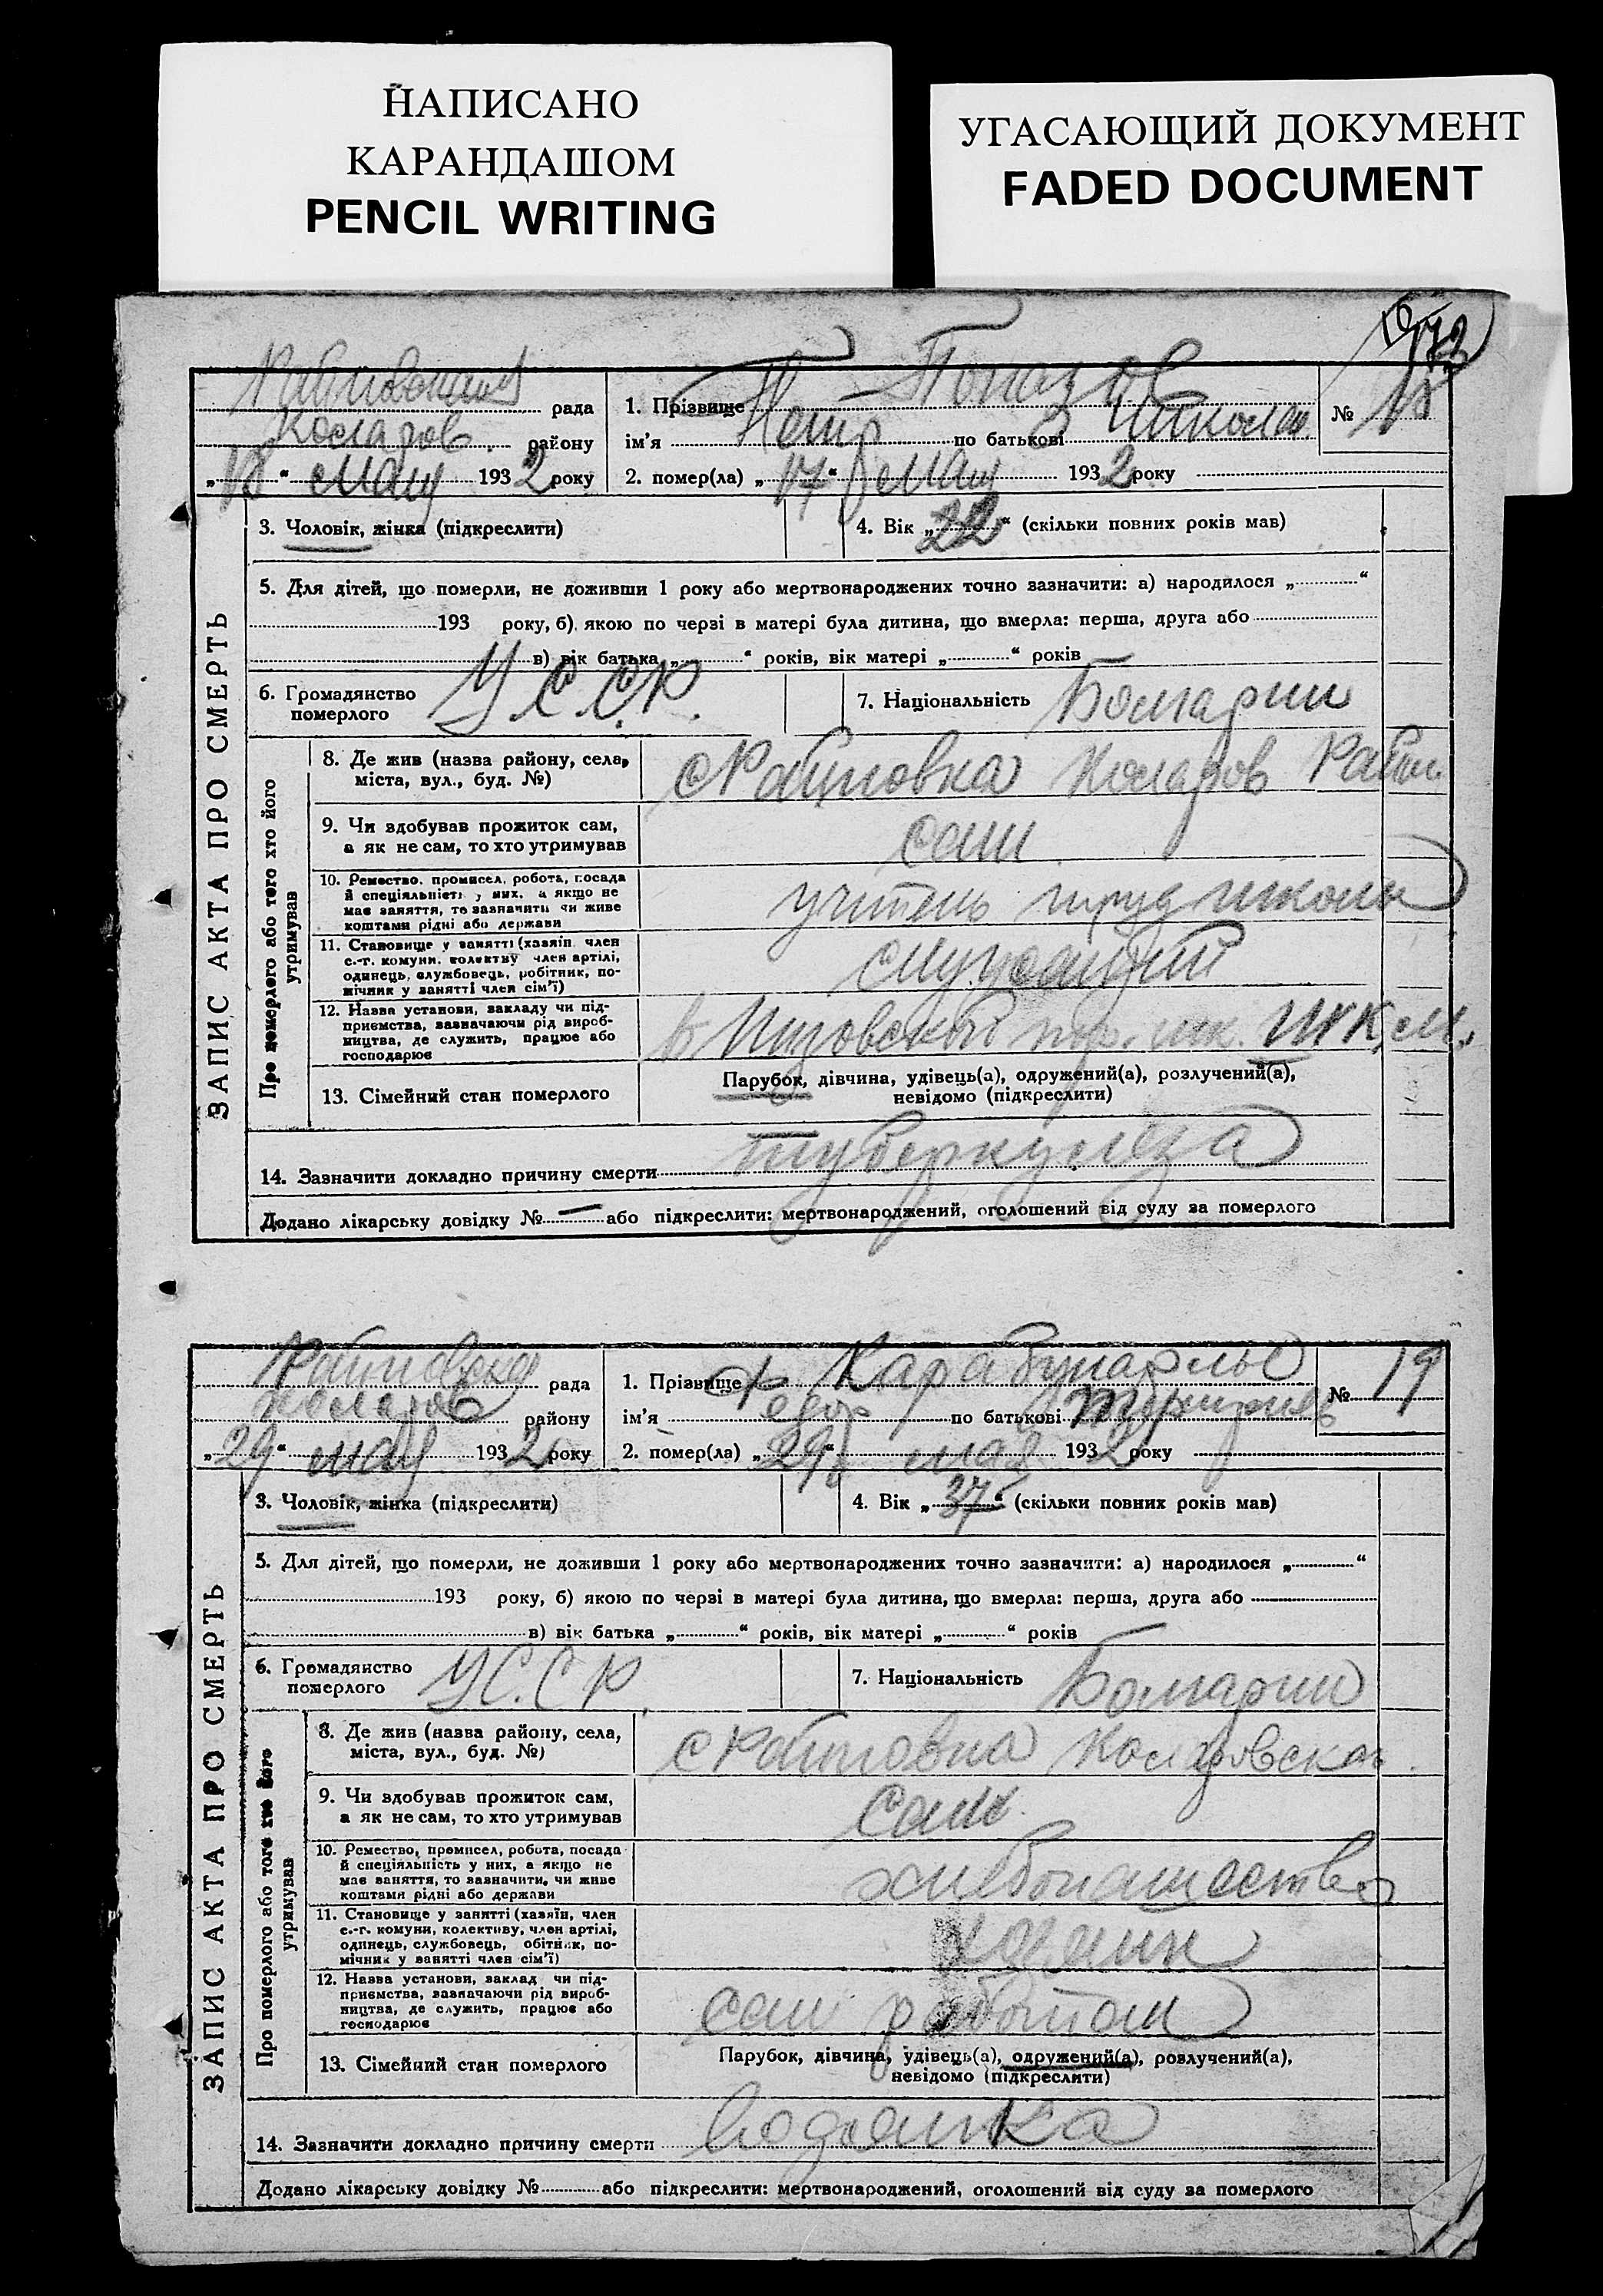 НАПИСАНО
КАРАНДАШОМ
PENCIL WRITING
УГАСАЮЩИЙ ДОКУМЕНТ
FADED DOCUMENT
рада
Коларов. району
„18“ мая 1932 року
1. Прізвище
ім'я Петр по батькові
2. помер(ла) „17“ мая 1932 року
№ 18
ЗАПИС АКТА ПРО СМЕРТЬ
3. Чоловік, жінка (підкреслити)
4. Вік „22“ (скільки повних років мав)
5. Для дітей, що померли, не доживши 1 року або мертвонароджених точно зазначити: а) народилося „ “
193 року, б) якою по черзі в матері була дитина, що вмерла: перша, друга або
в) вік батька „ “ років, вік матері „ “ років
6. Громадянство
померлого
У.С.С.Р.
7. Національність Болгарин
Про померлого або того хто його
утримував
8. Де жив (назва району, села,
міста, вул., буд. №)
с Райновка Коларов Район
9. Чи здобував прожиток сам,
а як не сам, то хто утримував
сам
10. Ремество, промисел, робота, посада
й спеціяльність у них, а якщо не
має заняття, то зазначити чи живе
коштами рідні або держави
учитель труд школы
11. Становище у занятті (хазяїн, член
с.-г. комуни, колективу член артілі,
одинець, службовець, робітник, по-
мічник у занятті член сім'ї)
служащий
12. Назва установи, закладу чи під-
приємства, зазначаючи род вироб-
ництва, де служить, працює або
господарює
13. Сімейний стан померлого
Парубок, дівчина, удівець(а), одружений(а), розлучений(а),
невідомо (підкреслити)
14. Зазначити докладно причину смерти туберкулеза
Додано лікарську довідку № — або підкреслити: мертвонароджений, оголошений від суду за померлого
рада
Коларов району
„29“ мая 1932 року
1. Прізвище
ім'я Федор по батькові
2. помер(ла) „29“ мая 1932 року
№ 19
ЗАПИС АКТА ПРО СМЕРТЬ
3. Чоловік, жінка (підкреслити)
4. Вік „37“ (скільки повних років мав)
5. Для дітей, що померли, не доживши 1 року або мертвонароджених точно зазначити: а) народилося „ “
193 року, б) якою по черзі в матері була дитина, що вмерла: перша, друга або
в) вік батька „ “ років, вік матері „ “ років
6. Громадянство
померлого
У С.С Р.
7. Національність Болгарин
Про померлого або того хто його
утримував
8. Де жив (назва району, села,
міста, вул., буд. №)
с Райновка
9. Чи здобував прожиток сам,
а як не сам, то хто утримував
Сам.
10. Ремество, промисел, робота, посада
й спеціяльність у них, а якщо не
має заняття, то зазначити, чи живе
коштами рідні або держави
хлебопашество
11. Становище у занятті (хазяїн, член
с.-г. комуни, колективу, член артілі,
одинець, службовець, обітник, по-
мічник у занятті член сім'ї)
хазяин
12. Назва установи, заклад чи під-
приємства, зазначаючи рід вироб-
ництва, де служить, працює або
господарює
сам работал
13. Сімейний стан померлого
Парубок, дівчина, удівець(а), одружений(а), розлучений(а),
невідомо (підкреслити)
14. Зазначити докладно причину смерти водянка
Додано лікарську довідку № або підкреслити: мертвонароджений, оголошений від суду за померлого